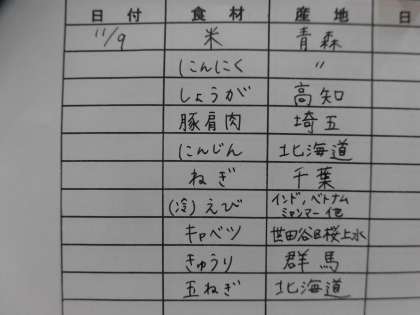 日付 食材 産地 日
11/9 米 青森
にんにく 〃
しょうが 高知
豚肩肉 埼五
にんじん 北海道
ねぎ 千葉
(冷)えび インド、ベトナム ミャンマー 他
キャベツ 世田谷区桜上水
きゅうり 群馬
玉ねぎ 北海道